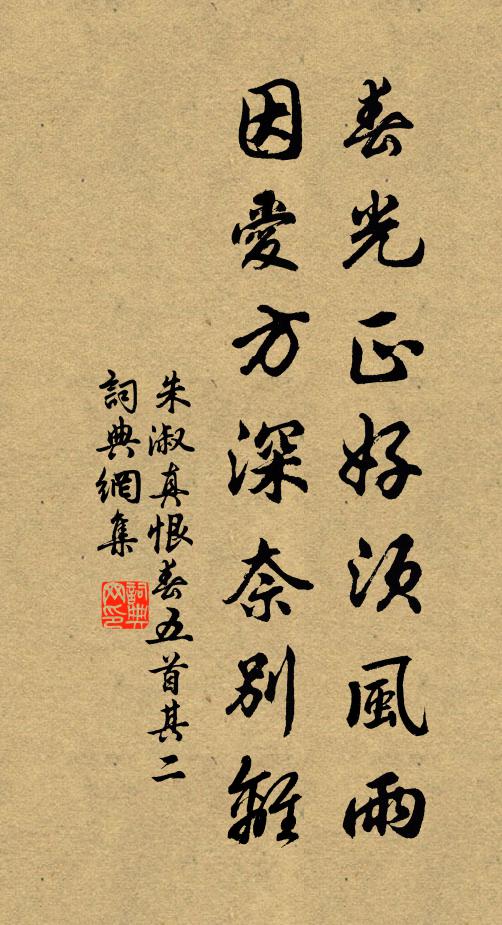 春光正好須風雨
因愛方深奈別離
朱淑真恨春五首其二
詞典網集
詞典網印